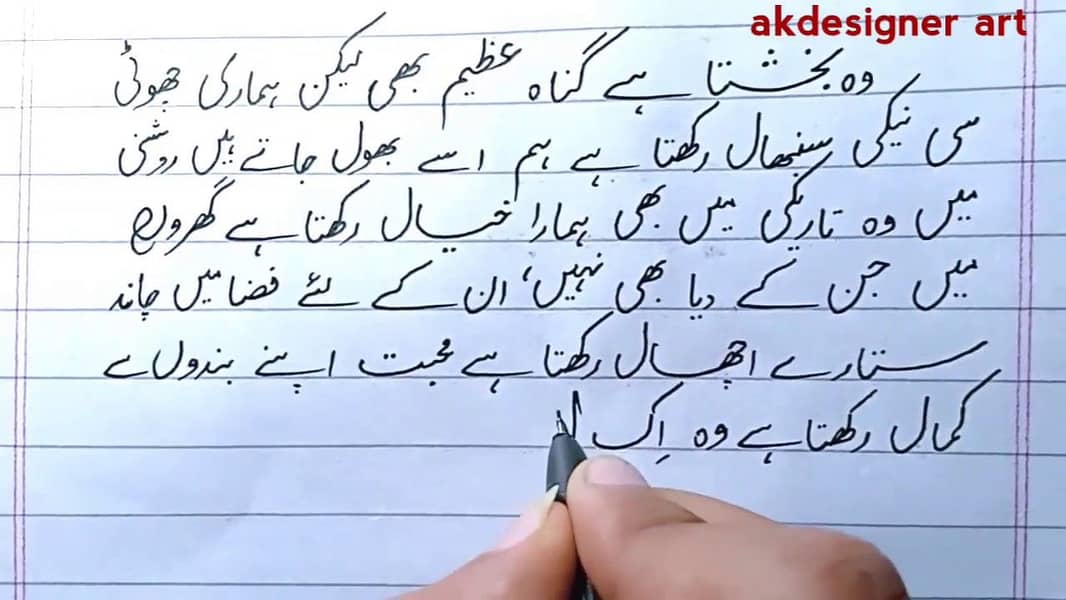 akdesigner art
وہ بخشتا ہے گناہ عظیم بھی لیکن ہماری چھوٹی
سی نیکی سنبھال رکھتا ہے ہم اسے بھول جاتے ہیں روشنی
میں وہ تاریکی میں بھی ہمارا خیال رکھتا ہے گھروں
میں جن کے دیا بھی نہیں، ان کے لئے فضا میں چاند
ستارے اچھال رکھتا ہے محبت اپنے بندوں سے
کمال رکھتا ہے وہ اِک